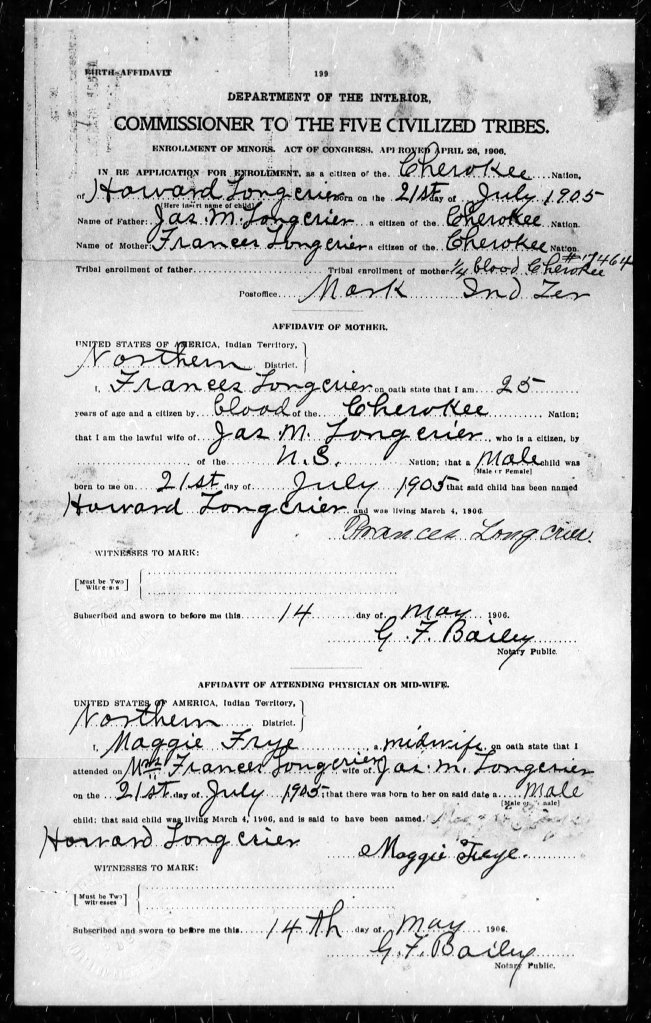 BIRTH-AFFIDAVIT 199
DEPARTMENT OF THE INTERIOR,
COMMISSIONER TO THE FIVE CIVILIZED TRIBES.
ENROLLMENT OF MINORS. ACT OF CONGRESS, APPROVED APRIL 26, 1906.
IN RE APPLICATION FOR ENROLLMENT, as a citizen of the Cherokee Nation,
of Howard Longcrier born on the 21st day of July 1905
[Here insert name of child]
Name of Father: Jas. M. Longcrier a citizen of the Cherokee Nation.
Name of Mother: Frances Longcrier a citizen of the Cherokee Nation.
#17464
Tribal enrollment of father Tribal enrollment of mother 1/4 blood Cherokee
Postoffice Mark Ind Ter
AFFIDAVIT OF MOTHER.
UNITED STATES OF AMERICA, Indian Territory,
Northern District.
I, Frances Longcrier on oath state that I am 25
years of age and a citizen by blood of the Cherokee Nation;
that I am the lawful wife of Jas M. Longcrier, who is a citizen, by
of the U.S. Nation; that a Male child was
[Male or Female]
born to me on 21st day of July 1905 that said child has been named
Howard Longcrier and was living March 4, 1906.
Frances Longcrier.
WITNESSES TO MARK:
[Must be Two Witnesses]
Subscribed and sworn to before me this 14 day of May 1906.
G. F. Bailey
Notary Public.
AFFIDAVIT OF ATTENDING PHYSICIAN OR MID-WIFE.
UNITED STATES OF AMERICA, Indian Territory,
Northern District.
I, Maggie Frye, a midwife, on oath state that I
attended on Mrs. Frances Longcrier wife of Jas. M. Longcrier
on the 21st day of July 1905; that there was born to her on said date a Male
[Male or Female]
child; that said child was living March 4, 1906, and is said to have been named
Howard Longcrier
Maggie Frye.
WITNESSES TO MARK:
[Must be Two witnesses]
Subscribed and sworn to before me this 14th day of May 1906.
G. F. Bailey
Notary Public.